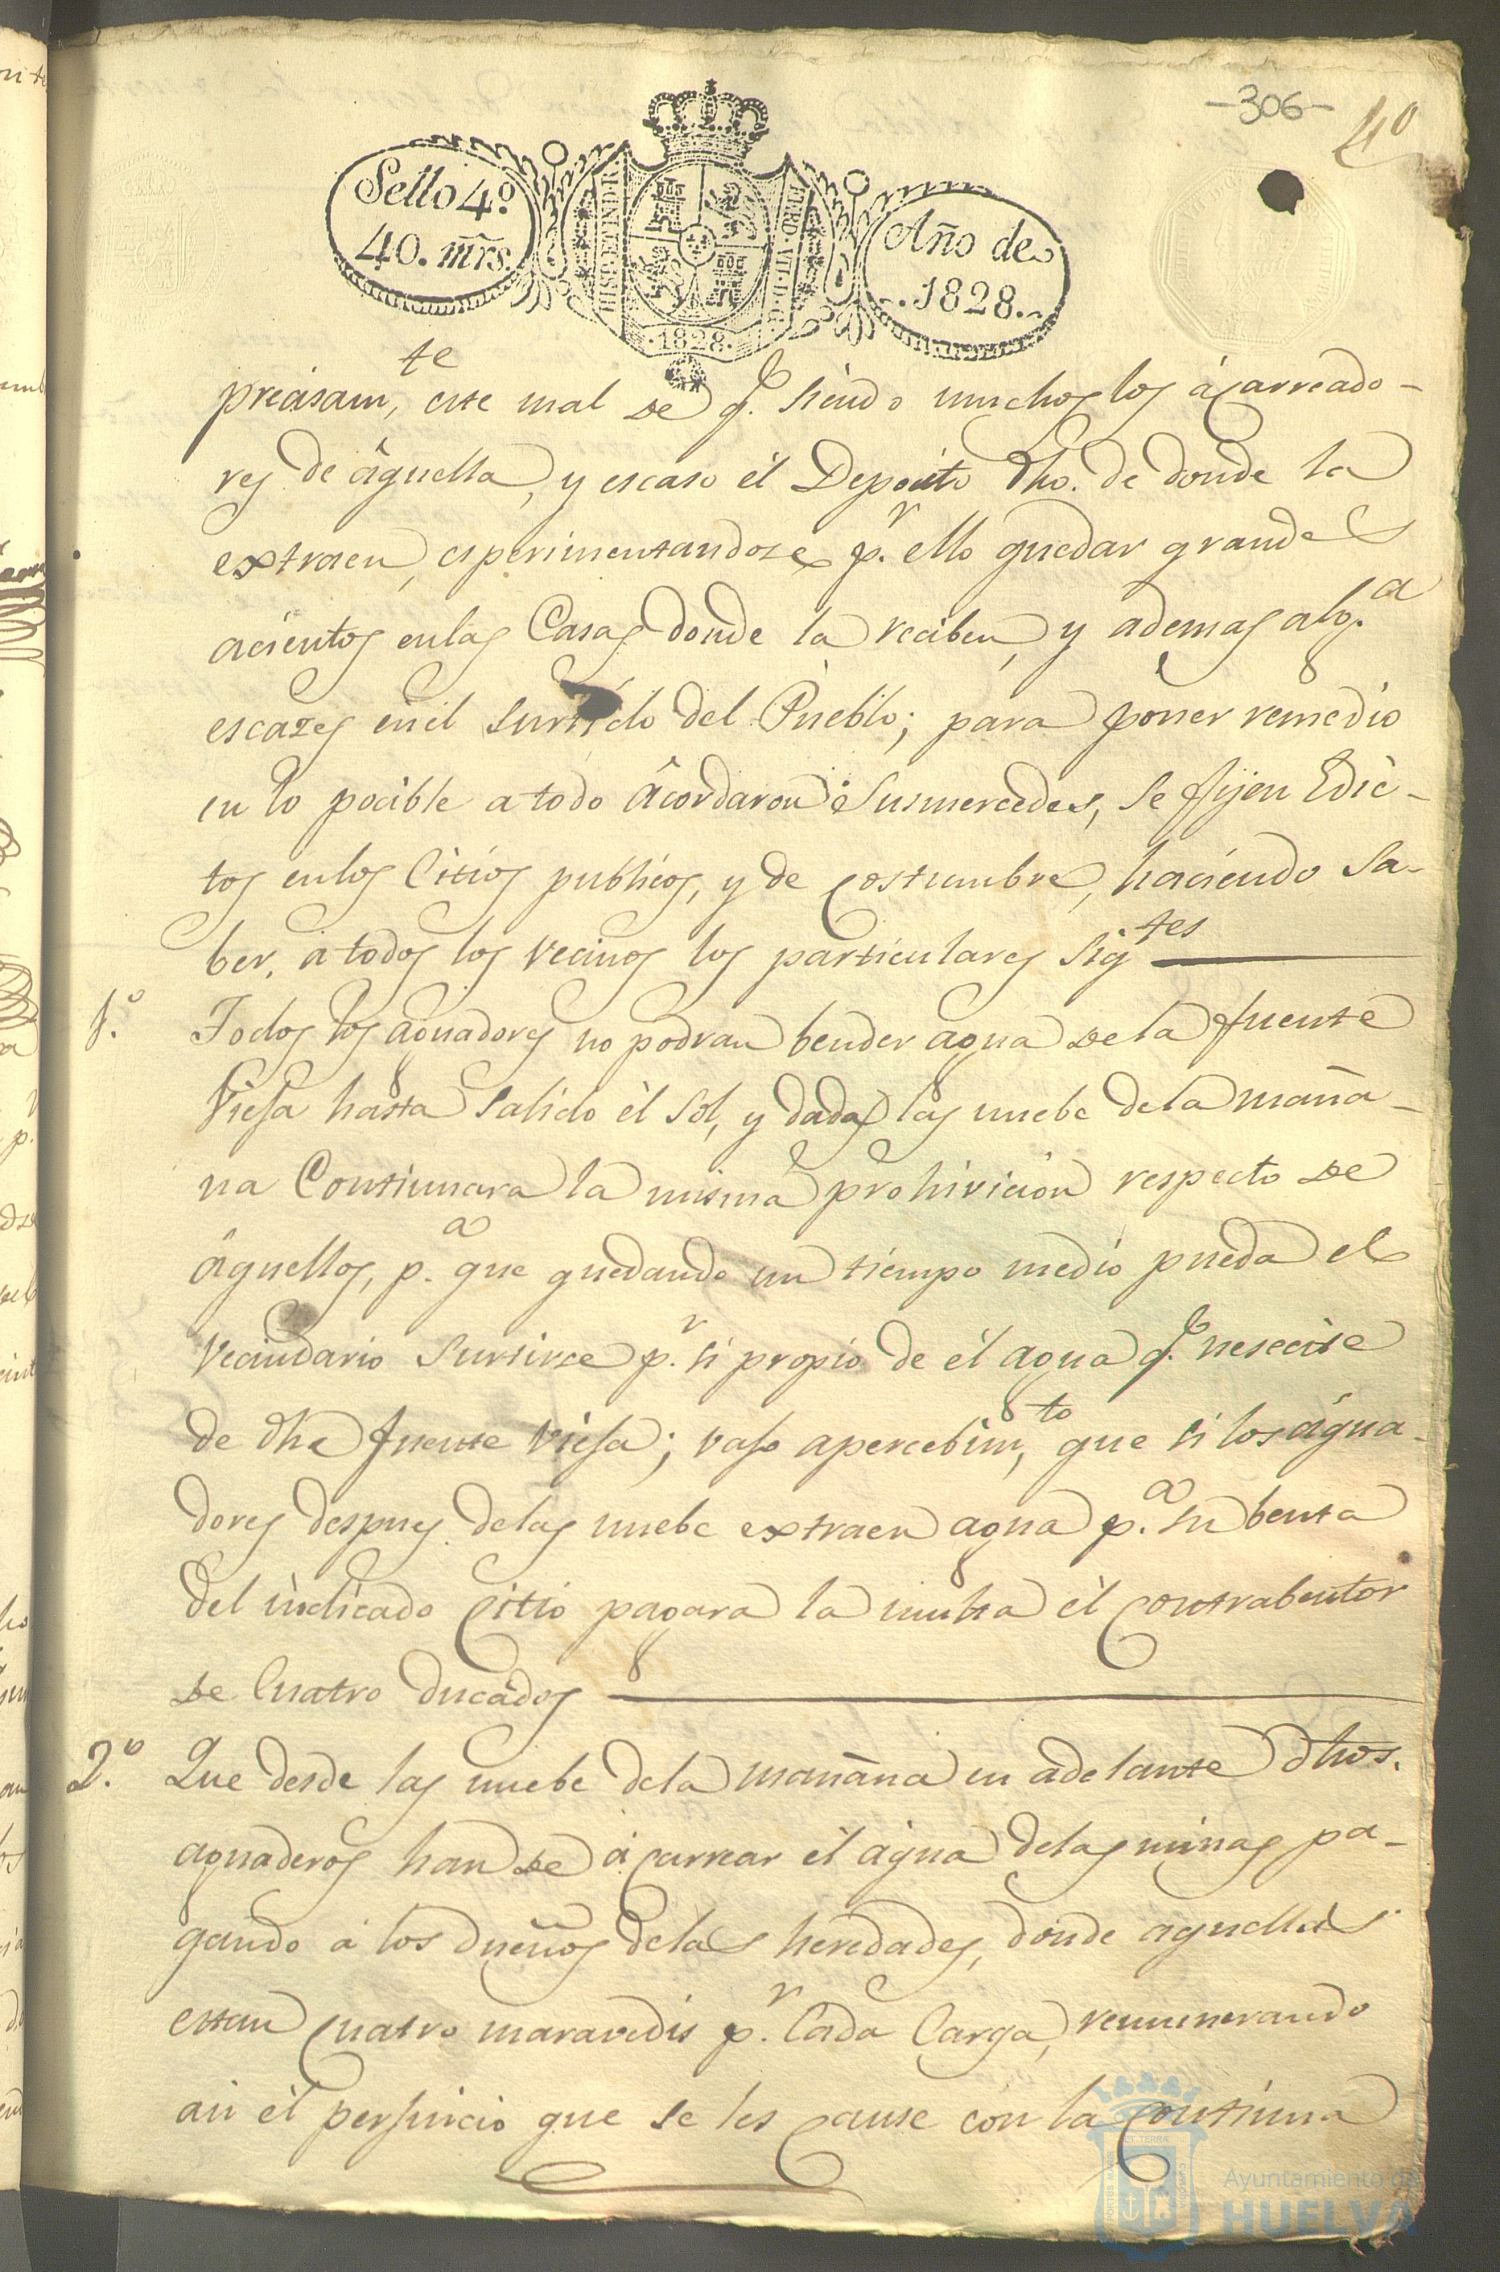 -306-
40
Sello 4º
40. mrs.
HISPANIARUM
FERD. VII. D. G.
.1828.
Año de
1828.
precisamte, este mal de q.e siendo muchos los ácarreado-
res de âquella, y escaso él Deposito dho. de donde la
extraen, esperimentandose p.r ello quedar grandes
acientos enlas Casas donde la reciben, y ademas alg.a
escazes en el surtido del Pueblo; para poner remedio
en lo pocible a todo âcordaron Susmercedes, se fijen Edic-
tos enlos Citios publicos, y de costumbre, haciendo sa-
ber, a todos los vecinos los particulares sigtes
1.º Todos los aguadores no podran bender agua de la fuente
Viefa hasta salido él Sol, y dadas las nuebe dela maña-
na Continuara la misma prohivicion respecto de
âquellos, p.a que quedando un tiempo medio pueda el
Vecindario surtirce p.r si propio de él agua q.e nesecite
de dha fuente Viefa; vafo apercebimto, que si los água-
dores despues delas nuebe extraen agua p.a su benta
del indicado Citio pagara la multa él contrabentor
de Cuatro ducados
2.º Que desde las nuebe dela mañana en adelante dhos.
aguaderos han de ácarrear él água delas minas pa-
gando á los dueños delas heredades, donde aquellas
estan cuatro maravedis p.r Cada Carga, remunerando
asi él perfuicio que se les cause con la continua
Ayuntamiento de
HUELVA